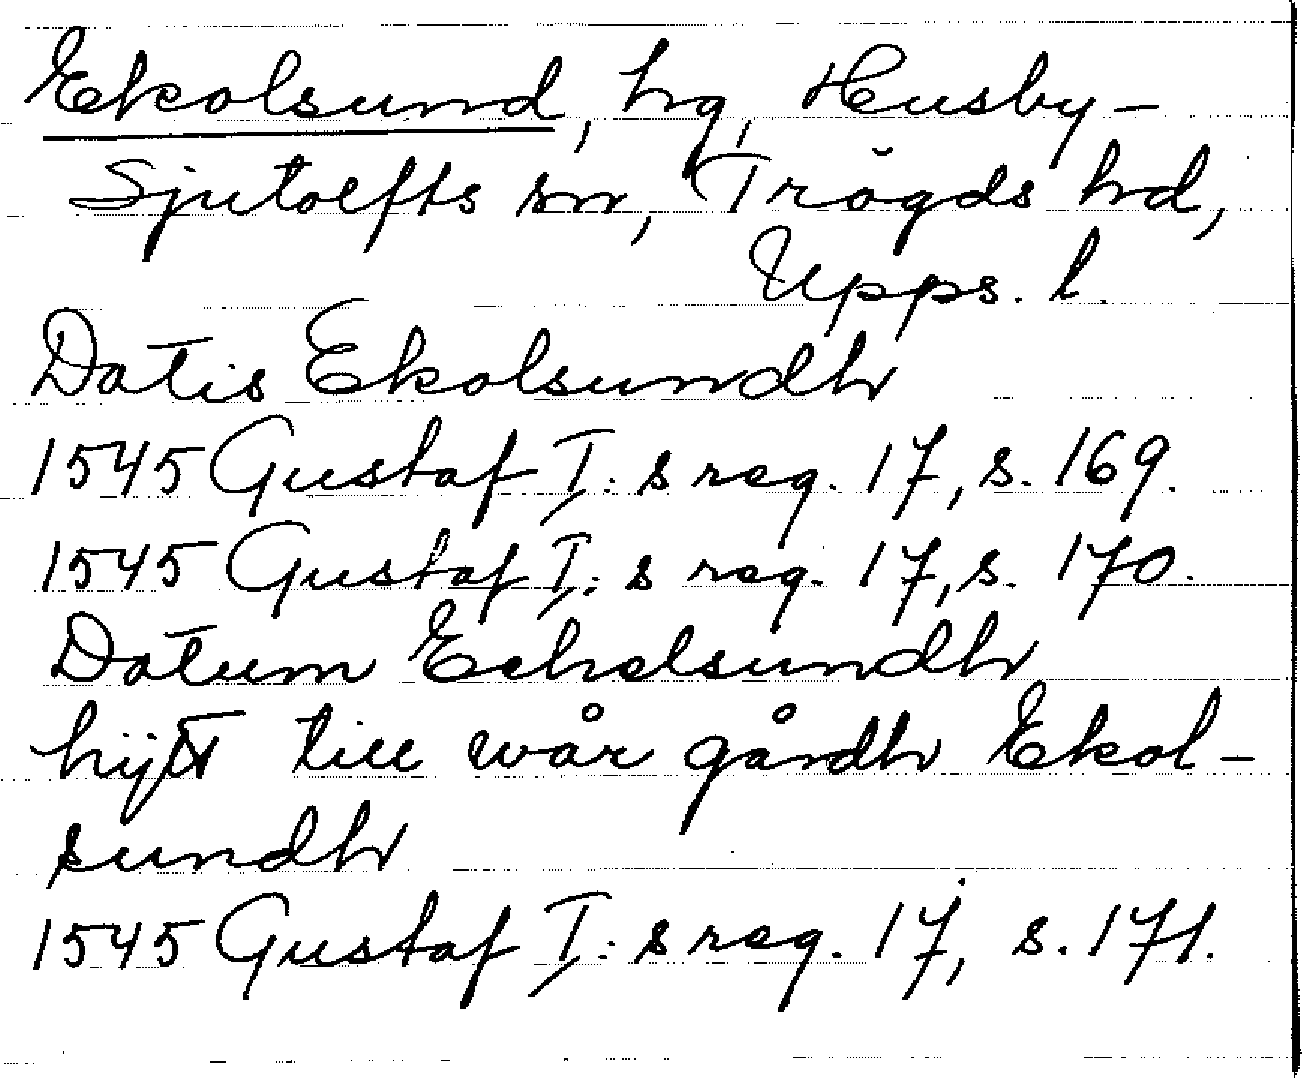 Ekolsund, hg, Husby-
Sjutolfts sn, Trögds hd,
Upps. l.
Datis Ekolsundh
1545 Gustaf I:s reg. 17, s. 169.
1545 Gustaf I:s reg. 17, s. 170.
Datum Echolsundh
hijtt till wår gårdh Ekol-
sundh
1545 Gustaf I:s reg. 17, s. 171.